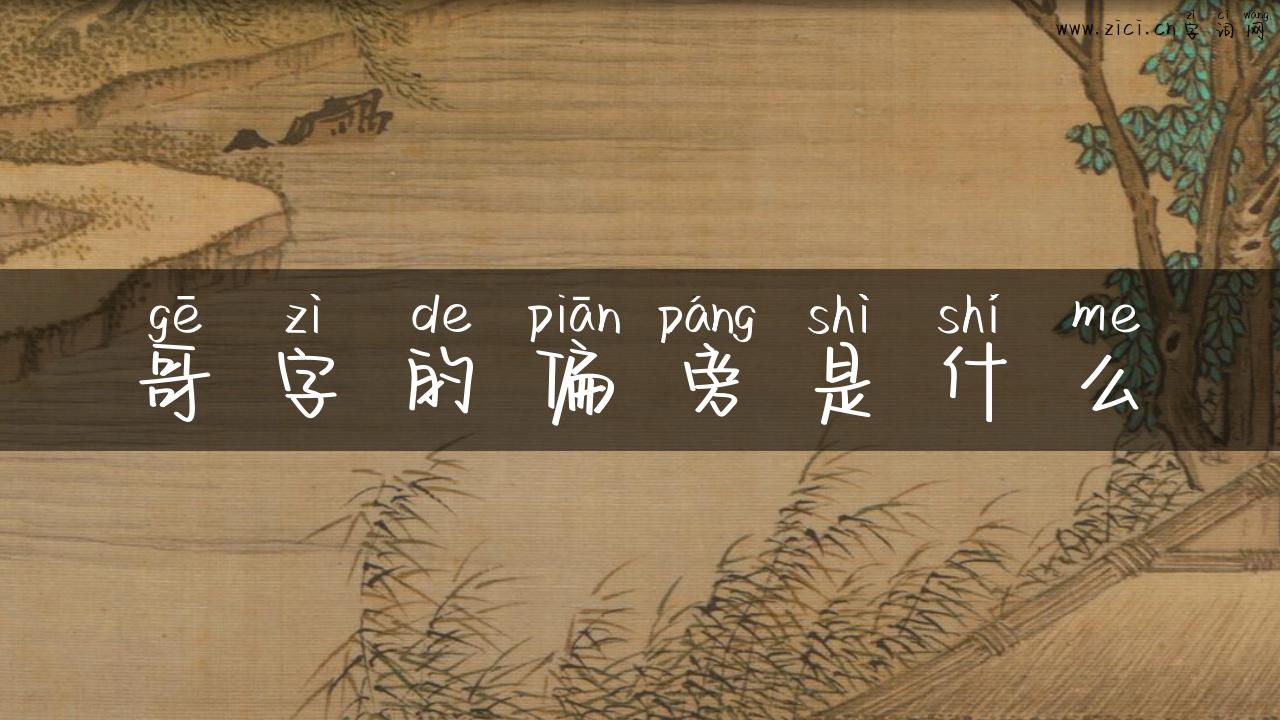 zì cí wǎng
www.zici.cn字词网
gē zì de piān páng shì shí me
哥字的偏旁是什么